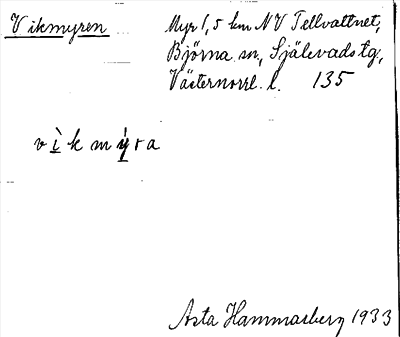 Vikmyren
Myr 1,5 km NV Tellvattnet,
Björna sn, Själevads tg,
Västernorrl. l. 135
v ì k m ý r a
Asta Hammarberg 1933